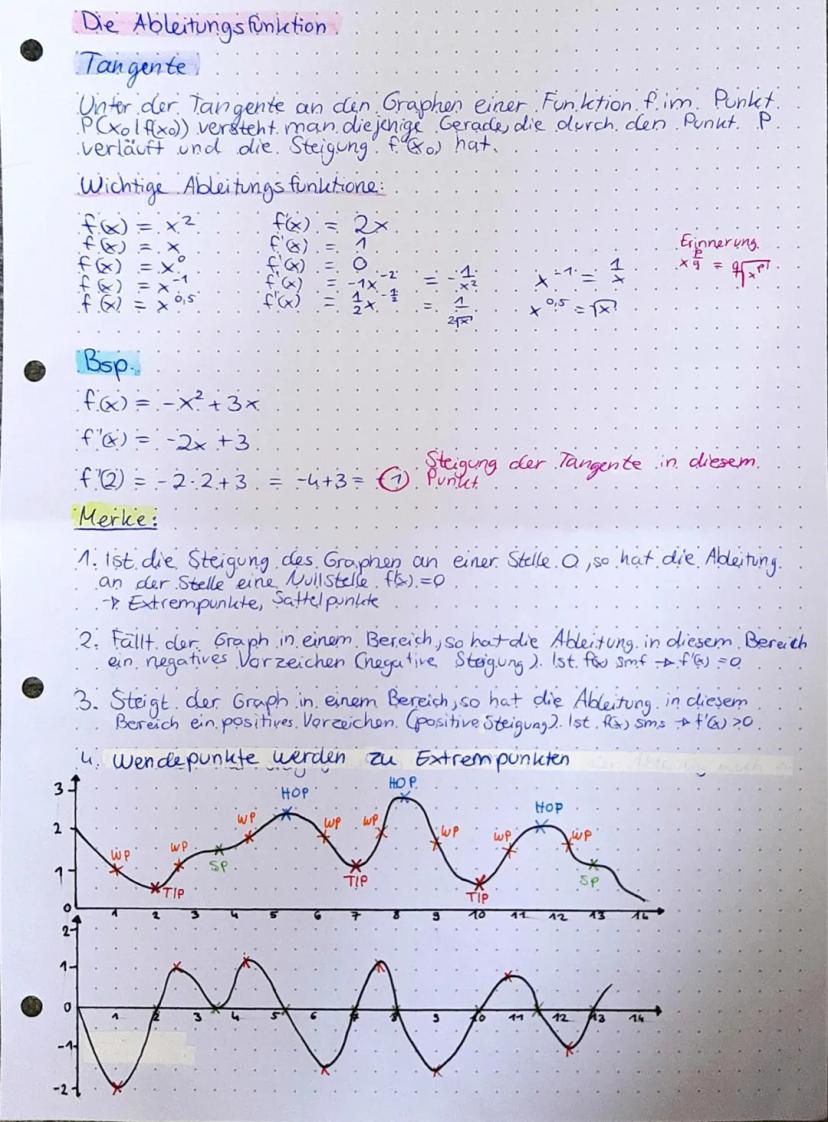 Die Ableitungsfunktion
Tangente
Unter der Tangente an den Graphen einer Funktion f im Punkt
P(x₀|f(x₀)) versteht man diejenige Gerade, die durch den Punkt P
verläuft und die Steigung f'(x₀) hat.
Wichtige Ableitungsfunktione:
f(x) = x² f'(x) = 2x
f(x) = x f'(x) = 1
f(x) = x⁰ f'(x) = 0
f(x) = x⁻¹ f'(x) = -1x⁻² = -1/x² x⁻¹ = 1/x
f(x) = x^0,5 f'(x) = 1/2 x^-1/2 = 1/(2√x) x^0,5 = √x
Erinnerung
x^(p/q) = q√(x^p)
Bsp.
f(x) = -x² + 3x
f'(x) = -2x + 3
f'(2) = -2·2+3 = -4+3 = -1 Steigung der Tangente in diesem
Punkt
Merke:
1. Ist die Steigung des Graphen an einer Stelle 0, so hat die Ableitung
an der Stelle eine Nullstelle. f(x)=0
→ Extrempunkte, Sattelpunkte
2. Fällt der Graph in einem Bereich, so hat die Ableitung in diesem Bereich
ein negatives Vorzeichen (negative Steigung). Ist f(x) smf → f'(x) = 0
3. Steigt der Graph in einem Bereich, so hat die Ableitung in diesem
Bereich ein positives Vorzeichen. (positive Steigung). Ist f(x) sms → f'(x) >0
4. Wendepunkte werden zu Extrempunkten
HOP HOP HOP
WP WP WP WP WP WP WP WP
SP SP
TIP TIP TIP
3
2
1
0
1 2 3 4 5 6 7 8 9 10 11 12 13 14
2
1
0
1 2 3 4 5 6 7 8 9 10 11 12 13 14
-1
-2